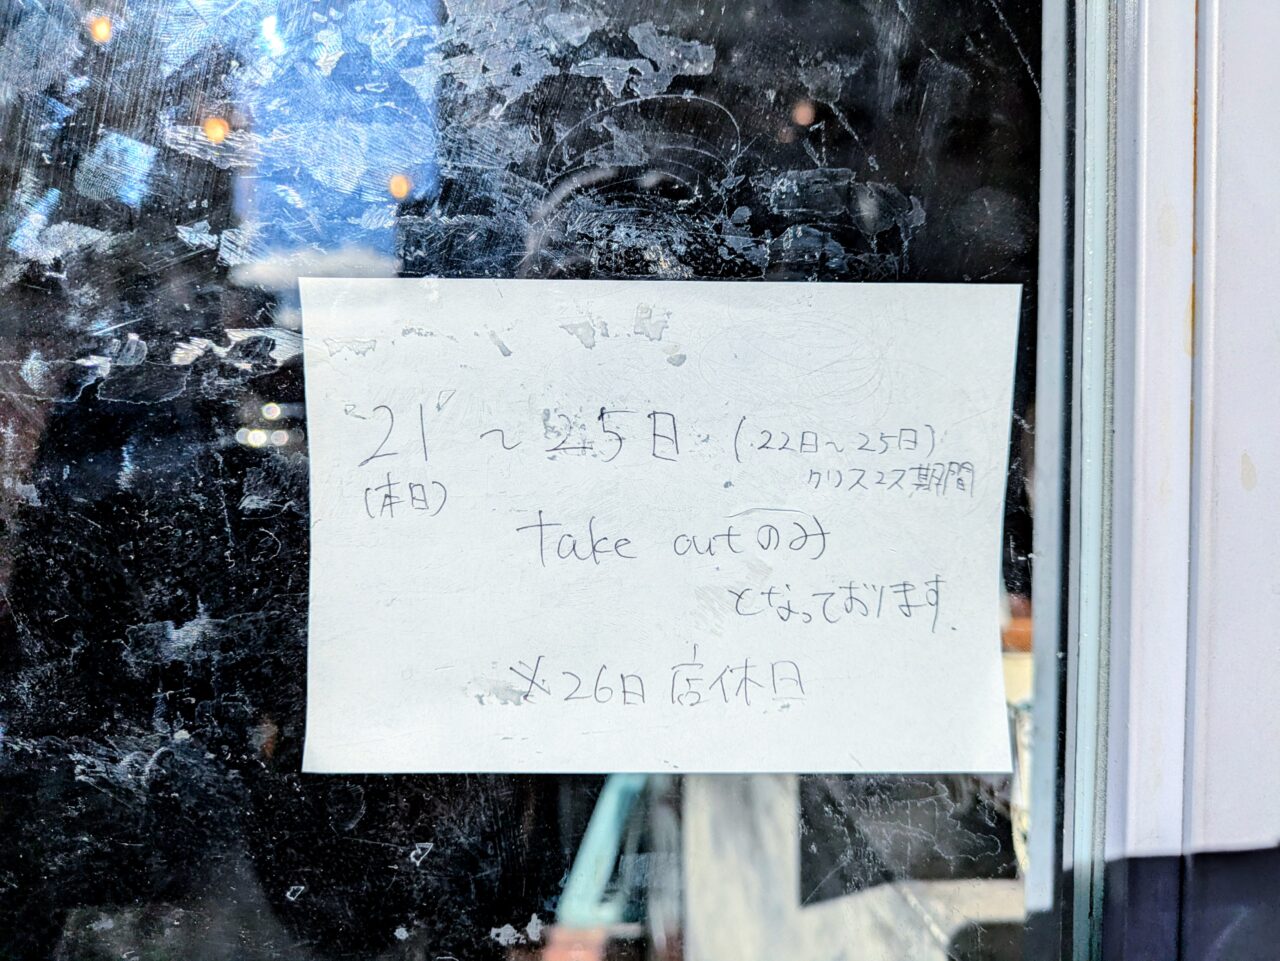 "21" ～ 25日 (22日～25日)
(本日) クリスマス期間
take outのみ
となっております.
※26日 店休日